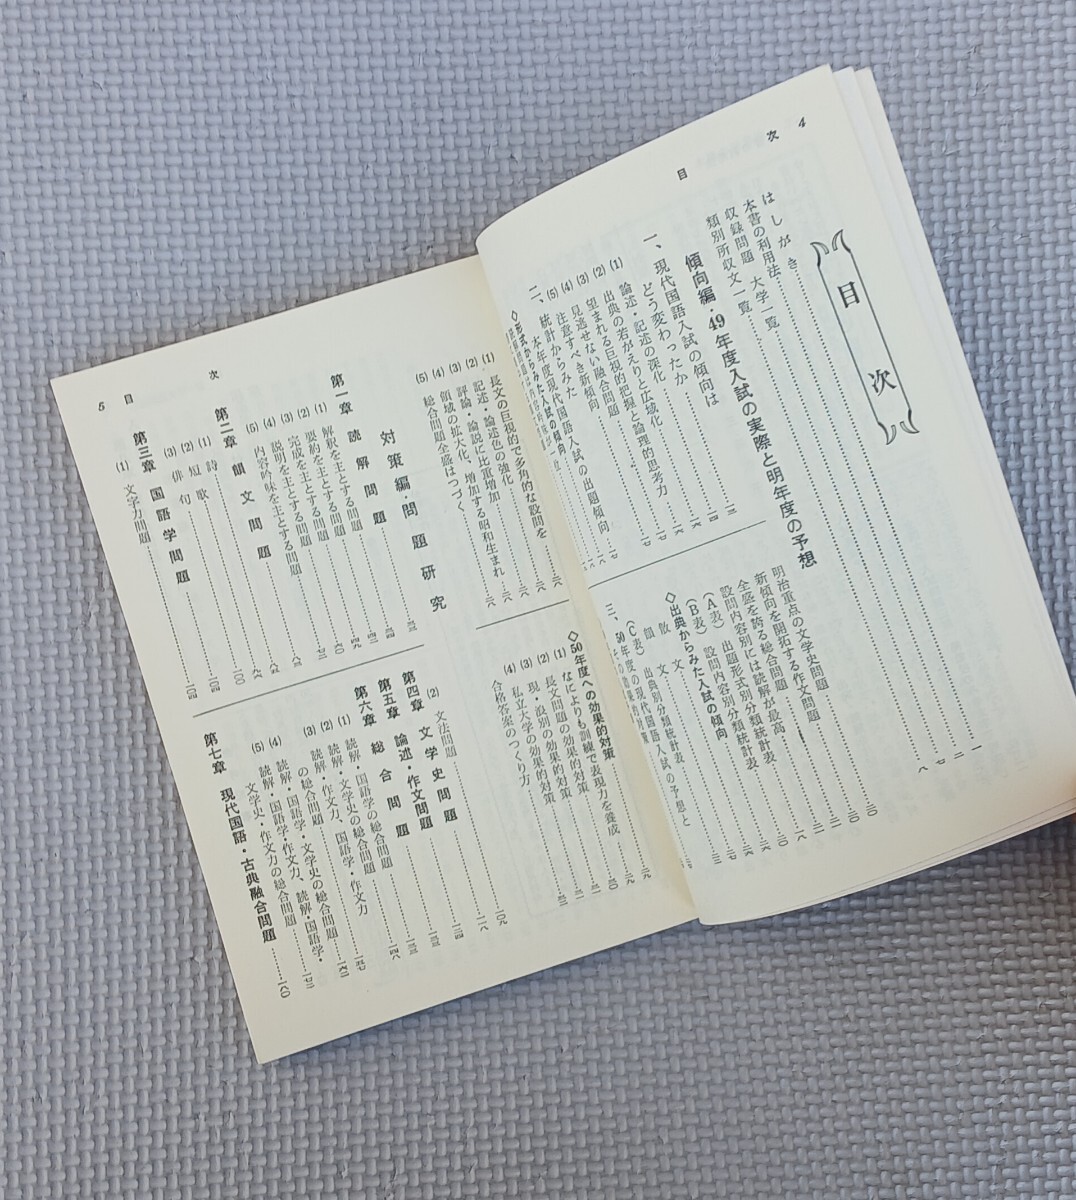 目次 4
目次
はしがき……一
本書の利用法……二
収録問題 大学一覧……七
類別所収文一覧……八
傾向編・49年度入試の実際と明年度の予想
一、現代国語入試の傾向は
どう変わったか
(1) 論述・記述の深化
(2) 出典の若がえりと広域化
(3) 望まれる巨視的把握と論理的思考力
(4) 見逃せない融合問題
(5) 注意すべき新傾向
二、統計からみた
本年度現代国語入試の出題傾向
◇形式からみた入試の傾向
明治重点の文学史問題
新傾向を開拓する作文問題
全盛を誇る総合問題
設問内容別には読解が最高
(A表) 出題形式別分類統計表
(B表) 設問内容別分類統計表
◇出典からみた入試の傾向
散文
韻文
(C表) 出典別分類統計表
三、50年度の現代国語入試の予想と
目次 5
(1) 長文の巨視的で多角的な設問を……二八
(2) 記述・論述色の強化……二八
(3) 評論・論説に比重増加……二八
(4) 領域の拡大化、増加する昭和生まれ……二八
(5) 総合問題全盛はつづく
◇50年度への効果的対策
(1) なによりも訓練で表現力を養成……二九
(2) 長文問題の効果的対策……二九
(3) 現・浪別の効果的対策……三〇
(4) 私立大学の効果的対策……三一
合格答案のつくり方
対策編・問題研究
第一章 読解問題
(1) 解釈を主とする問題
(2) 要約を主とする問題
(3) 完成を主とする問題
(4) 説明を主とする問題
(5) 内容吟味を主とする問題
第二章 韻文問題……一〇〇
(1) 詩……一〇〇
(2) 短歌……一〇四
(3) 俳句……一〇四
第三章 国語学問題
(1) 文字力問題
(2) 文法問題……一〇九
第四章 文学史問題……一一八
第五章 論述・作文問題……一二四
第六章 総合問題
(1) 読解・国語学の総合問題
(2) 読解・文学史の総合問題……一四八
(3) 読解・作文力、国語学・作文力
の総合問題……一五七
(4) 読解・国語学・文学史の総合問題
(5) 読解・国語学・作文力、読解・国語学・
文学史・作文力の総合問題……一七二
第七章 現代国語・古典融合問題……一八〇